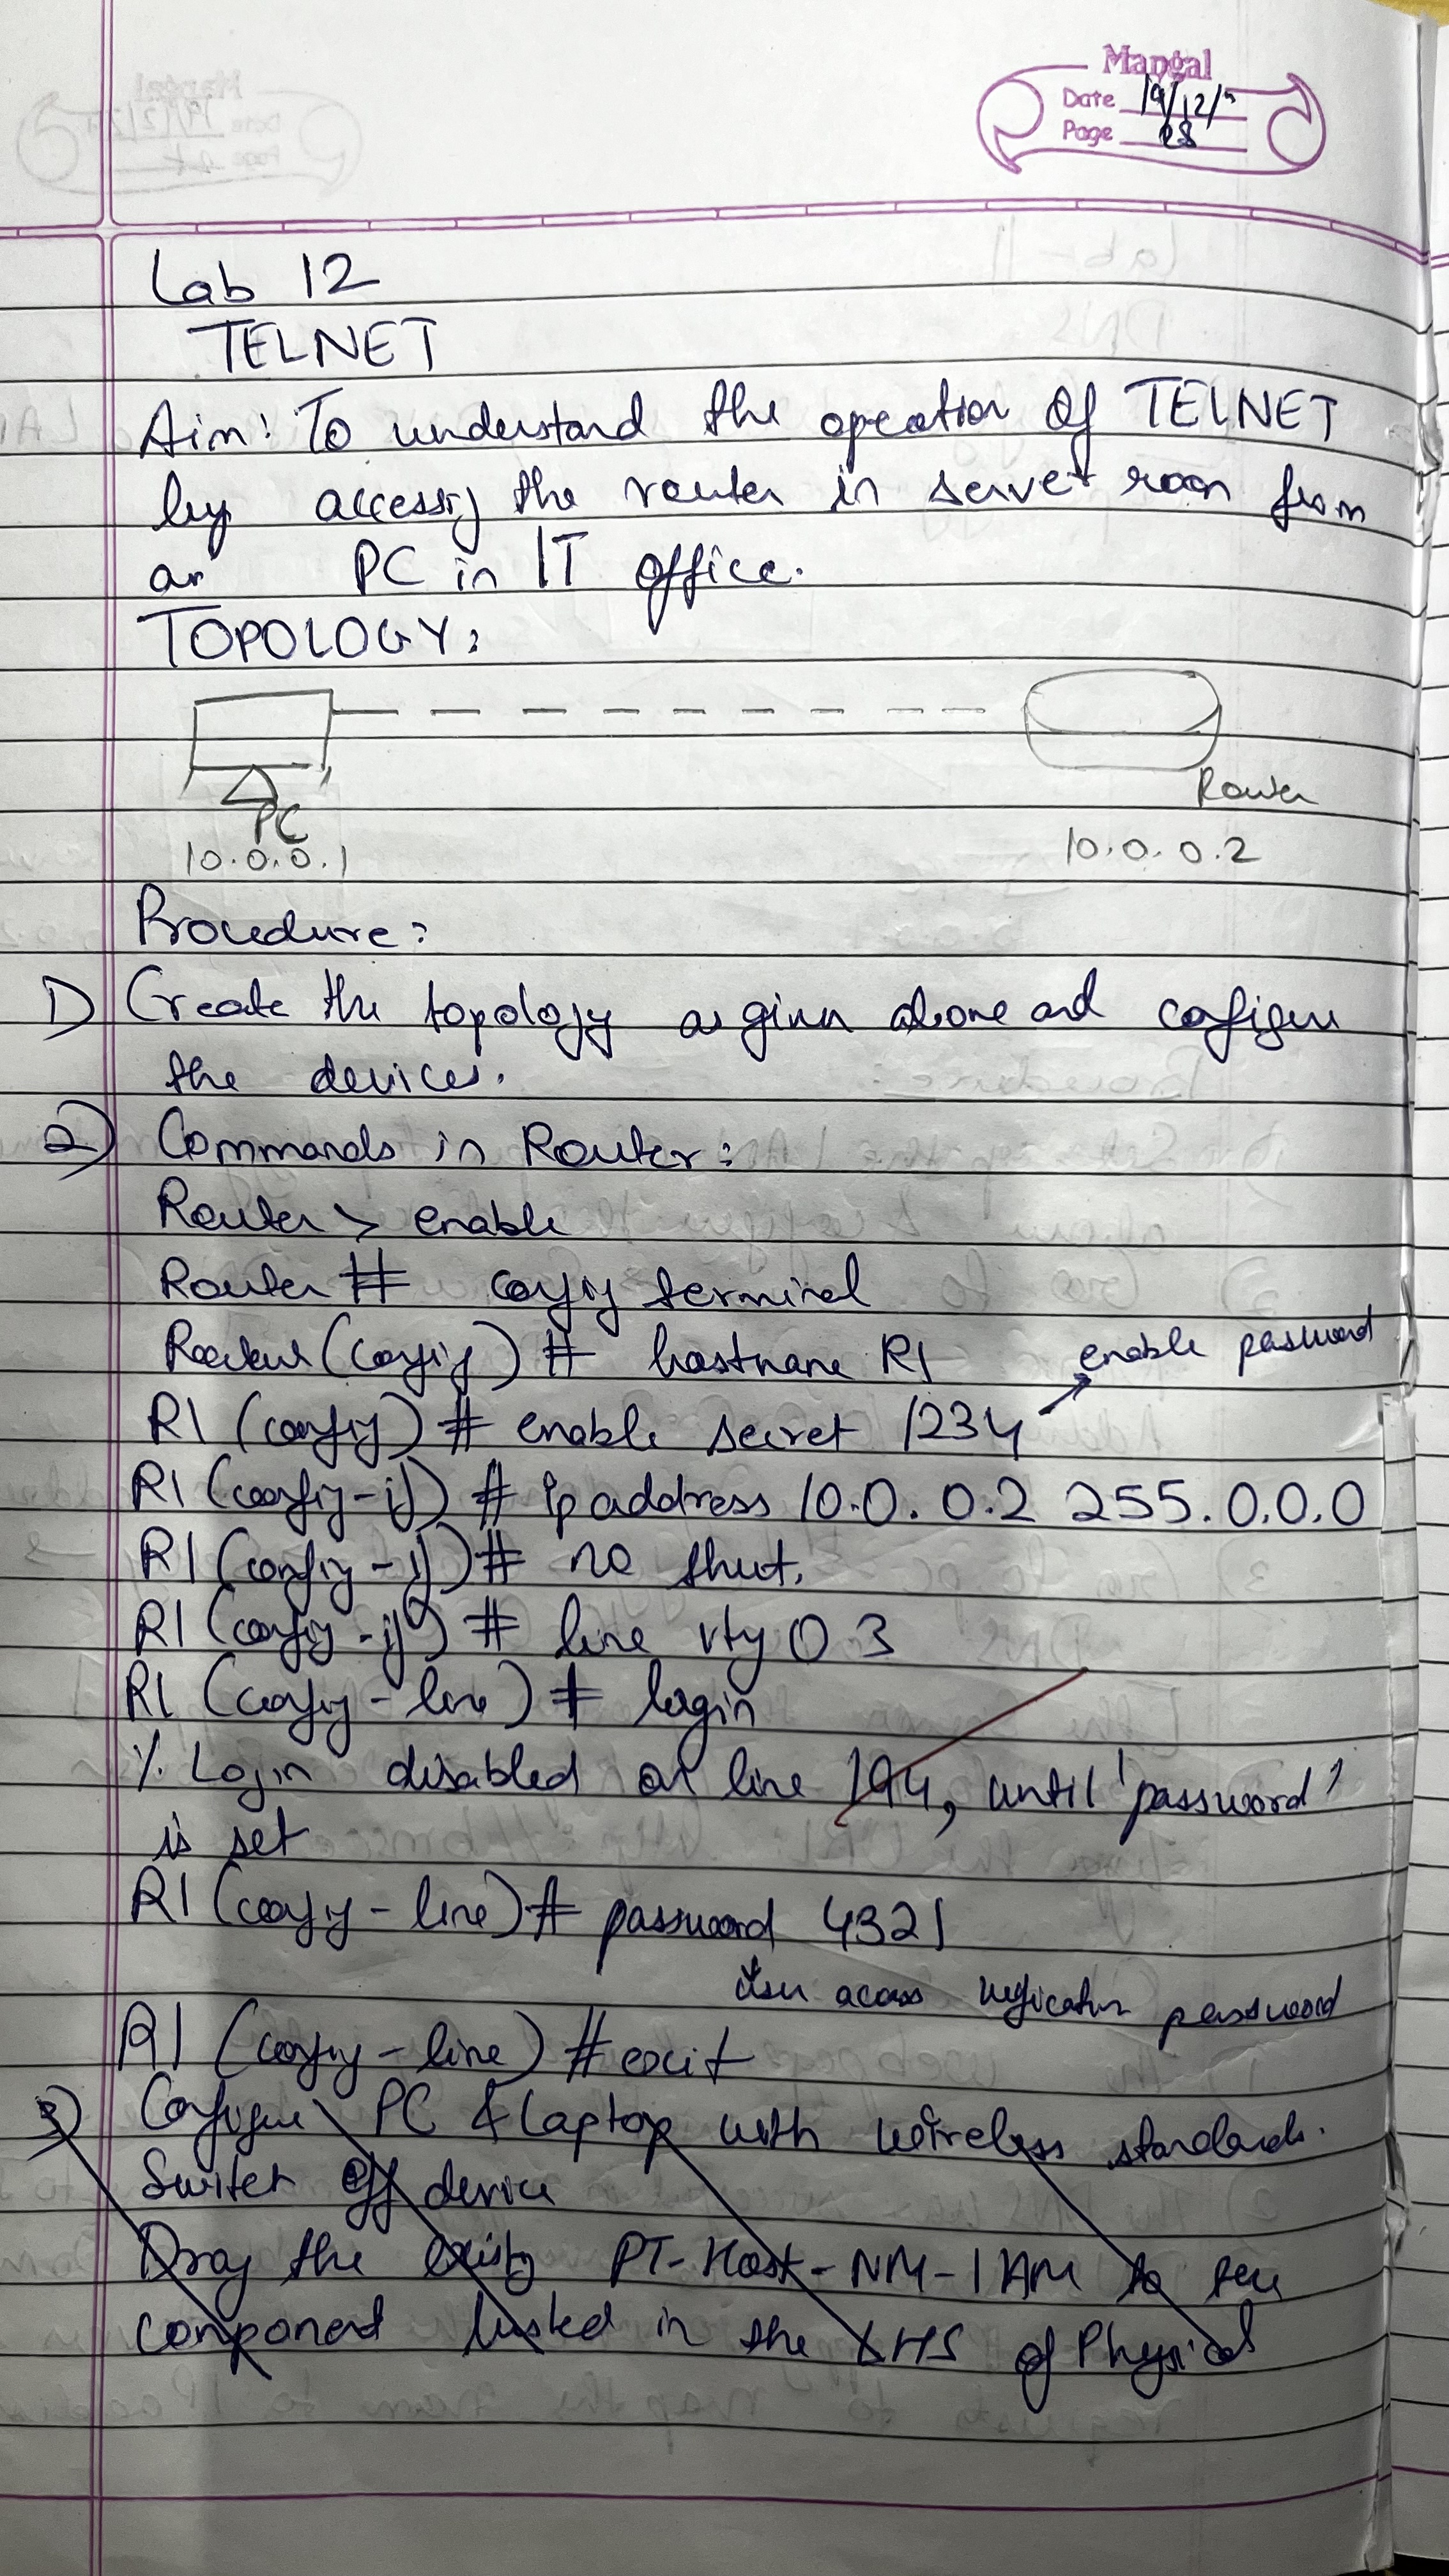 Mangal
Date 19/12/
Page 28
Lab 12
TELNET
Aim: To understand the opeation Of TELNET
by accessig the router in server room from
an PC in IT office.
TOPOLOGY:
PC
Router
10.0.0.1
10.0.0.2
Procedure:
1) Create the topology as given above and configure
the devices.
2) Commands in Router:
Router > enable
Router # config terminal
Router (config) # hostname R1
enable password
R1 (config) # enable secret 1234
R1 (config-if) # ip address 10.0.0.2 255.0.0.0
R1 (config-if) # no shut.
R1 (config-if) # line vty 0 3
R1 (config-line) # login
% Login disabled on line 194, until 'password'
is set
R1 (config-line) # password 4321
User access verification password
R1 (config-line) # exit
3) Configure PC & Laptop with wireless standards.
Switch off device
Drag the existing PT-Host-NM-1AM to the
component listed in the LHS of Physical